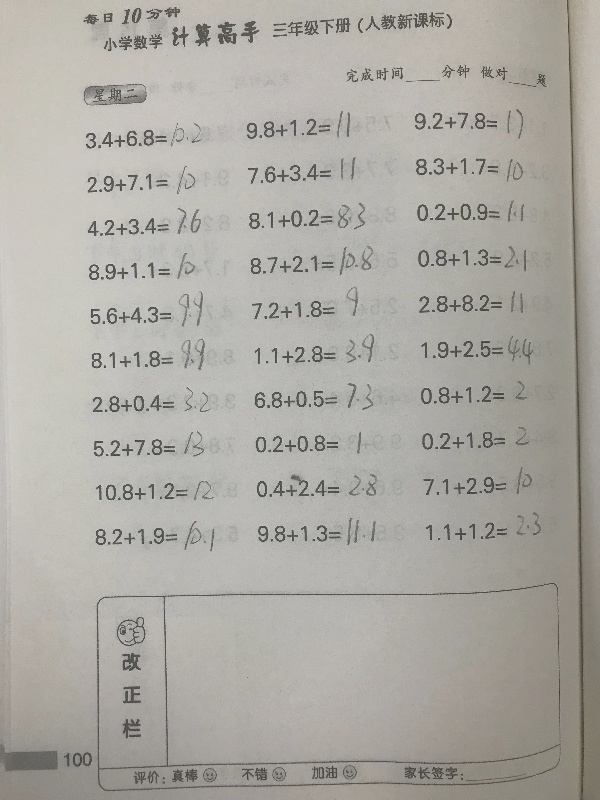 每日10分钟
小学数学 计算高手 三年级下册(人教新课标)
完成时间____分钟 做对____题
星期二
3.4+6.8=10.2 9.8+1.2=11 9.2+7.8=17
2.9+7.1=10 7.6+3.4=11 8.3+1.7=10
4.2+3.4=7.6 8.1+0.2=8.3 0.2+0.9=1.1
8.9+1.1=10 8.7+2.1=10.8 0.8+1.3=2.1
5.6+4.3=9.9 7.2+1.8=9 2.8+8.2=11
8.1+1.8=9.9 1.1+2.8=3.9 1.9+2.5=4.4
2.8+0.4=3.2 6.8+0.5=7.3 0.8+1.2=2
5.2+7.8=13 0.2+0.8=1 0.2+1.8=2
10.8+1.2=12 0.4+2.4=2.8 7.1+2.9=10
8.2+1.9=10.1 9.8+1.3=11.1 1.1+1.2=2.3
改正栏
100
评价:真棒 不错 加油 家长签字:________